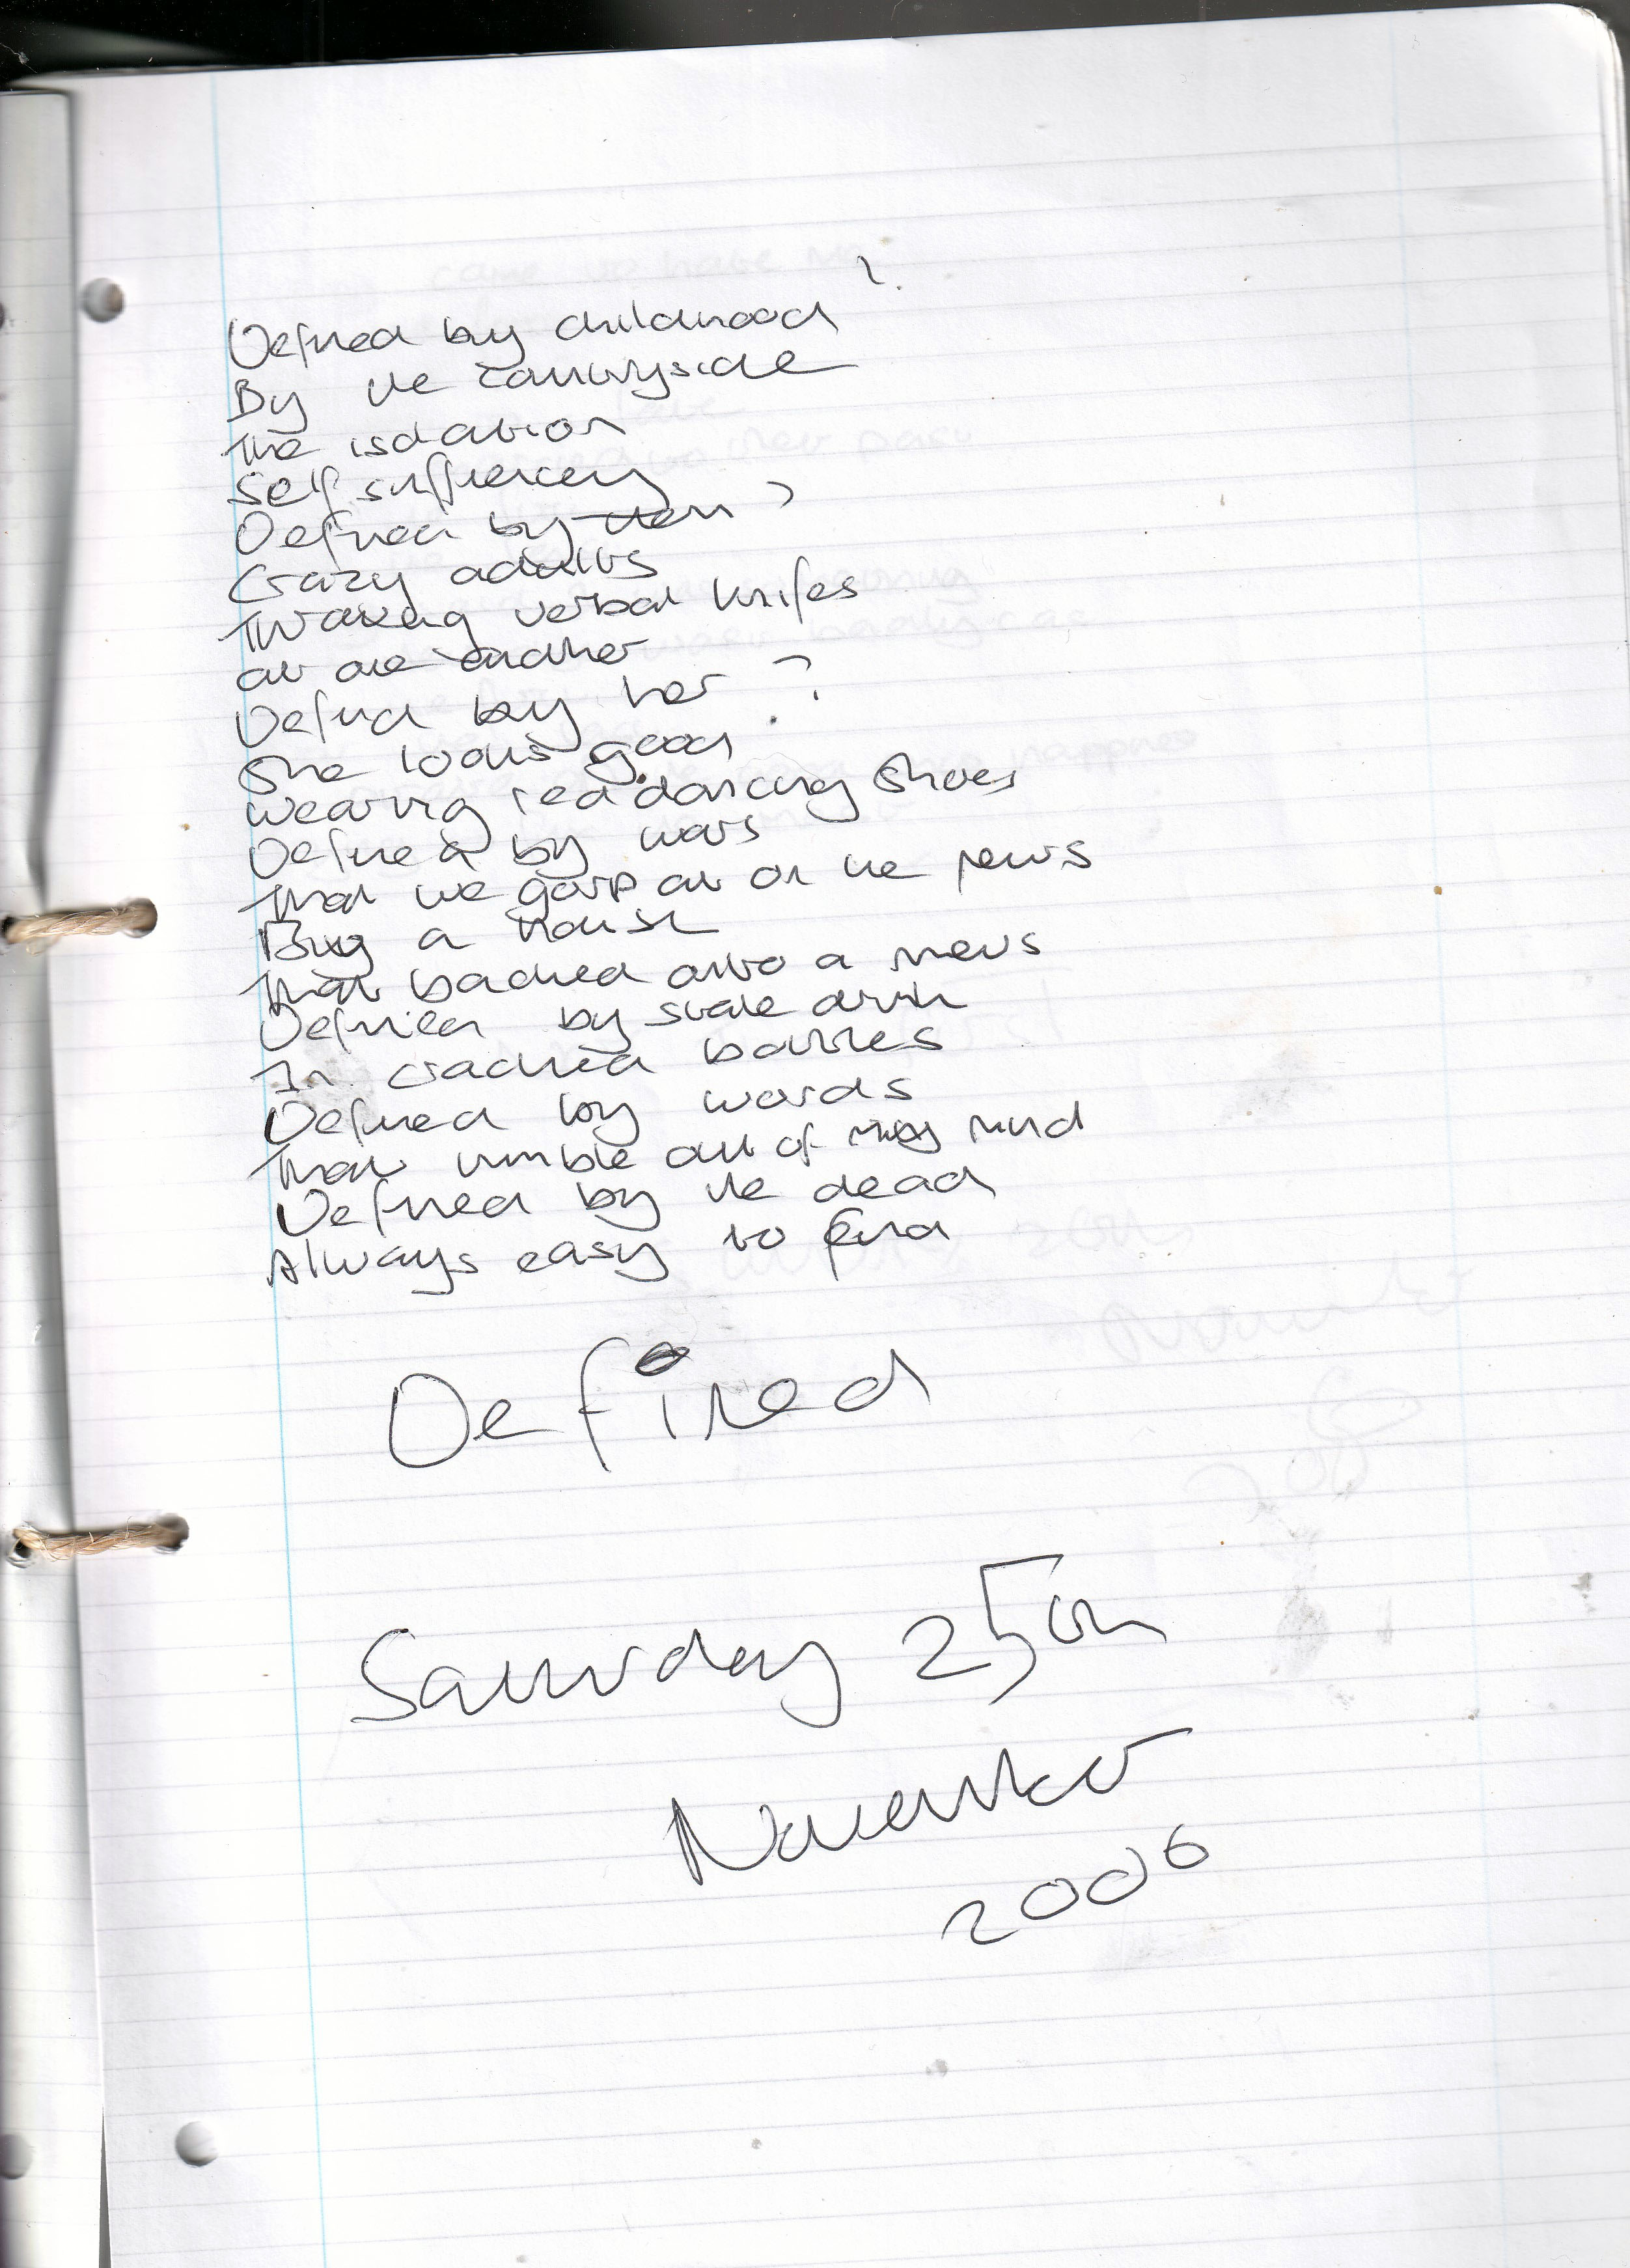 Defined by childhood?
By the countryside
The isolation
Self sufficiency
Defined by them?
Crazy adults
Throwing verbal knifes
at one another
Defind by her?
She looks good
wearing red dancing shoes
Defined by wars
That we gawp at on the news
Buy a house
That backed onto a mews
Defined by stale drink
In cracked bottles
Defined by words
That tumble out of my mind
Defined by the dead
Always easy to find
Defined
Saturday 25th
November
2006